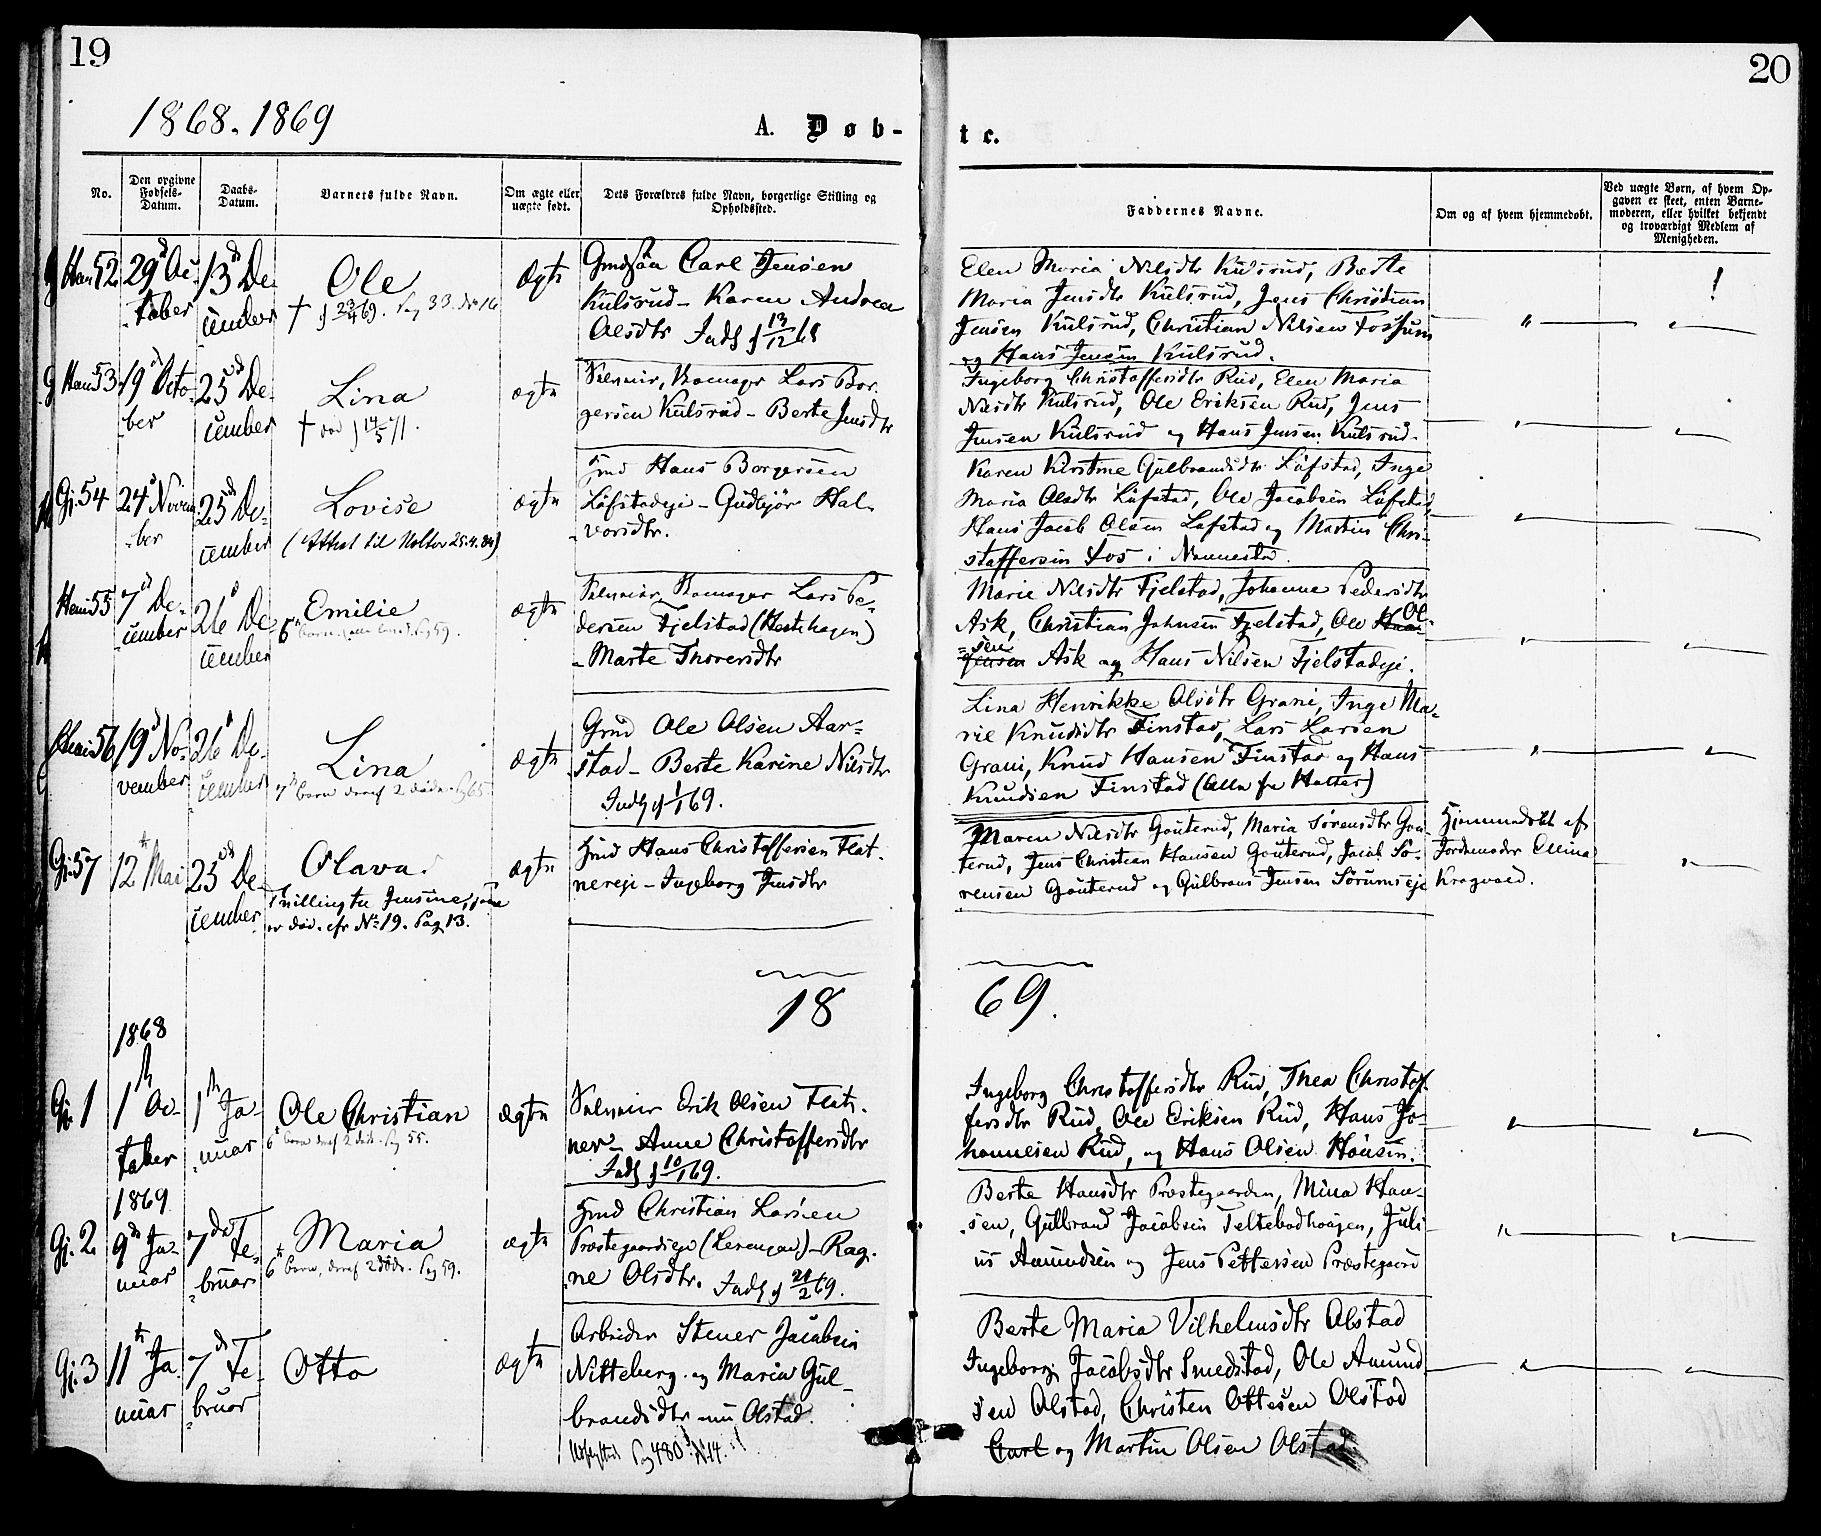 19
20
1868. 1869
A. Døb-
te.
No.
Den opgivne Fødsels-Datum.
Daabs-Datum.
Barnets fulde Navn.
Om ægte eller uægte født.
Dets Forældres fulde Navn, borgerlige Stilling og Opholdssted.
Faddernes Navne.
Om og af hvem hjemmedøbt.
Ved uægte Børn, af hvem Op-
gaven er skeet, enten Barne-
moderen, eller hvilket bekjendt
og troværdigt Medlem af
Menigheden.
52 29 Oc-
tober
13 De-
cember
Ole
† 23/4 69. Pag 33. No 16
Ægte
Carl Jensen
Kulsrud - Karen Andrea
Olsdtr 13/12 68
Elen Maria Nilsdtr Kulsrud, Berte
Maria Jensdtr Kulsrud, Jens Christian
Jensen Kulsrud, Christian Nilsen Fossum
og Hans Jensen Kulsrud.
53 19 Octo-
ber
25 De-
cember
Lina
† død 14/5 71.
ægte
Selveier, Lars Bor-
gersen Kulsrud - Berte Jensdtr
Ingeborg Christoffersdtr Rud, Elen Maria
Nilsdtr Kulsrud, Ole Eriksen Rud, Jens
Jensen Kulsrud og Hans Jensen Kulsrud.
Gj. 54 24 Novem-
ber
25 De-
cember
Lovise
(Attest til 25.4.84)
ægte
Hans Borgersen
Løfstadeje - Gudbjør Hal-
vorsdtr.
Karen Kirstine Gulbrandsdtr Løfstad, Inge
Maria Olsdtr Løfstad, Ole Jacobsen Løfstad
Hans Jacob Olsen Løfstad og Martin Chri-
stoffersen Fos i Nannestad.
55 7 De-
cember
26 De-
cember
Emilie
6 Barn Pag 59.
ægte
Selveier Lars Pe-
dersen Fjelstad (Hestehagen)
- Marte Thoresdtr
Marie Nilsdtr Fjelstad, Johanne Pedersdtr
Ask, Christian Johnsen Fjelstad, Ole Ol-
sen Ask og Hans Nilsen Fjelstadeje.
56 19 No-
vember
26 De-
cember
Lina
7 Barn deraf 2 døde. Pag 65.
ægte
Grud Ole Olsen Aar-
stad - Berte Karine Nilsdtr
1/1 69.
Lina Henrikke Olsdtr Grani, Inge Ma-
rie Knudsdtr Finstad, Lars Larsen
Grani, Knud Hansen Finstad og Hans
Knudsen Finstad (Alle fra Holter)
Gj. 57 12 Mai
25 De-
cember
Olava.
Tvilling til Jensine, som
er død. cfr No 19. Pag 13.
ægte
Hans Christoffersen Flat-
nereje - Ingeborg Jensdtr
Maren Nilsdtr Gouterud, Maria Sørensdtr Gou-
terud, Jens Christian Hansen Gouterud, Jacob Sø-
rensen Gouterud og Gulbrand Jensen Sørumseje
Hjemmedøbt af
Jordemoder Elina
Kragvold.
18
69.
1868
Gj. 1 1 Oc-
tober
1 Ja-
nuar
Ole Christian
6 Barn deraf 2 død. Pag 55.
ægte
Selveier Erik Olsen Flat-
ner - Anne Christoffersdtr
10/1 69.
Ingeborg Christoffersdtr Rud, Thea Christof-
fersdtr Rud, Ole Eriksen Rud, Hans Jo-
hannesen Rud, og Hans Olsen
1869
Gj. 2 9 Ja-
nuar
7 Fe-
bruar
Maria
6 Barn, deraf 2 døde. Pag 59.
ægte
Christian Larsen
Præstegaardseje - Rag-
ne Olsdtr. 21/2 69.
Berte Hansdtr Præstegaarden, Mina Han-
sen, Gulbrand Jacobsen Teltebadhougen, Juli-
us Amundsen og Jens Pettersen Præstegaard
Gj. 3 11 Ja-
nuar
7 Fe-
bruar
Otto
ægte
Arbeider Stener Jacobsen
Nitteberg og Maria Gul-
brandsdtr Olstad.
Pag 480 N 14.
Berte Maria Vilhelmsdtr Olstad
Ingeborg Jacobsdtr Smedstad, Ole Amund-
sen Olstad, Christen Ottesen Olstad
og Martin Olsen Olstad.